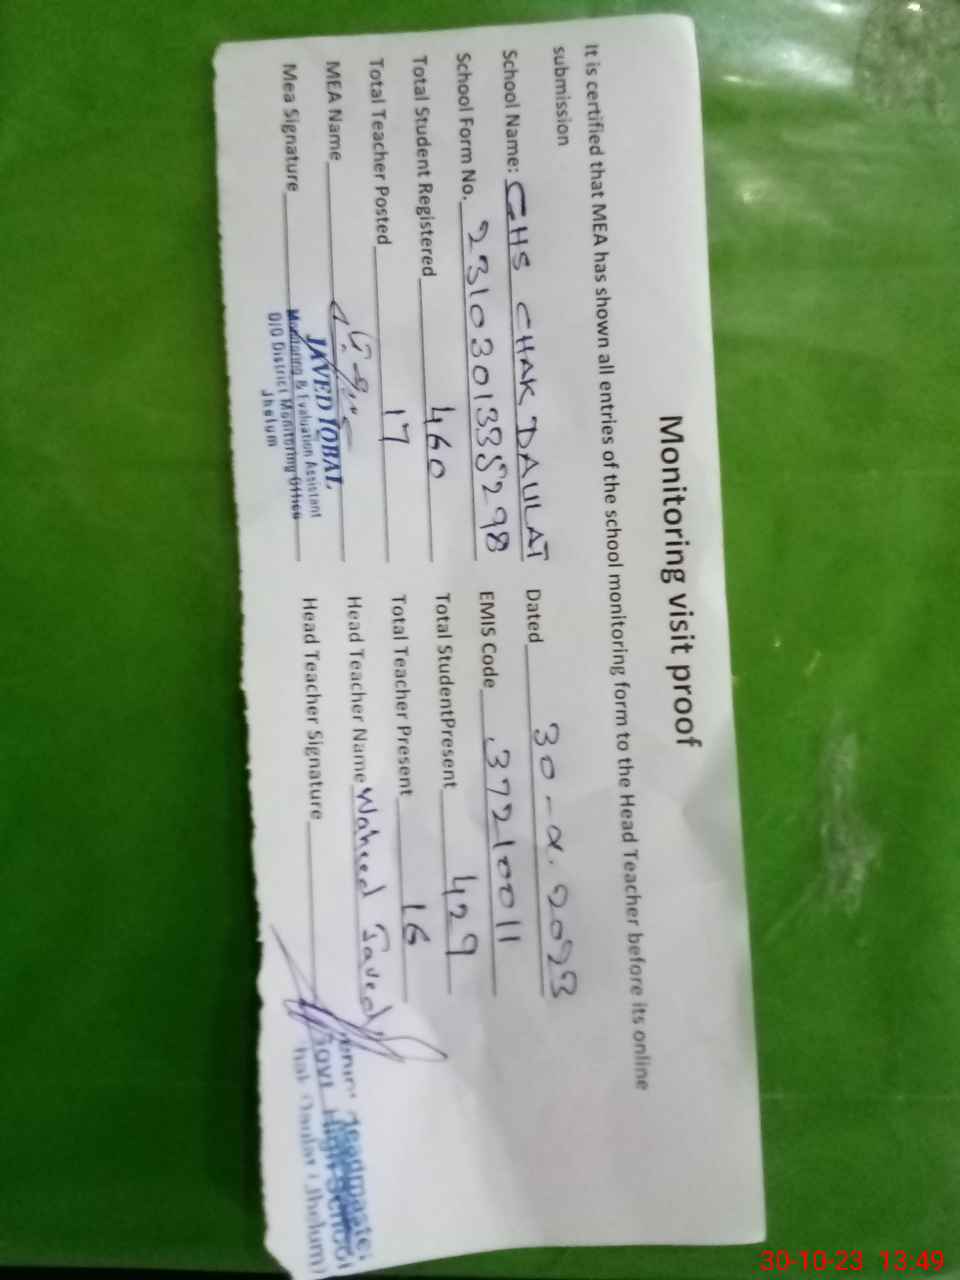 Monitoring visit proof
It is certified that MEA has shown all entries of the school monitoring form to the Head Teacher before its online
submission
School Name: GHS CHAK DAULAT Dated 30-
School Form No. 2310301335298 EMIS Code 37210011
Total Student Registered 460 Total StudentPresent 429
Total Teacher Posted 17 Total Teacher Present 16
MEA Name Head Teacher Name Waheed Javed
JAVED IQBAL
Mea Signature Head Teacher Signature
Monitoring & Evaluation Assistant
O/O District Monitoring Office
Jhelum
Govt. High School
30-10-23 13:49